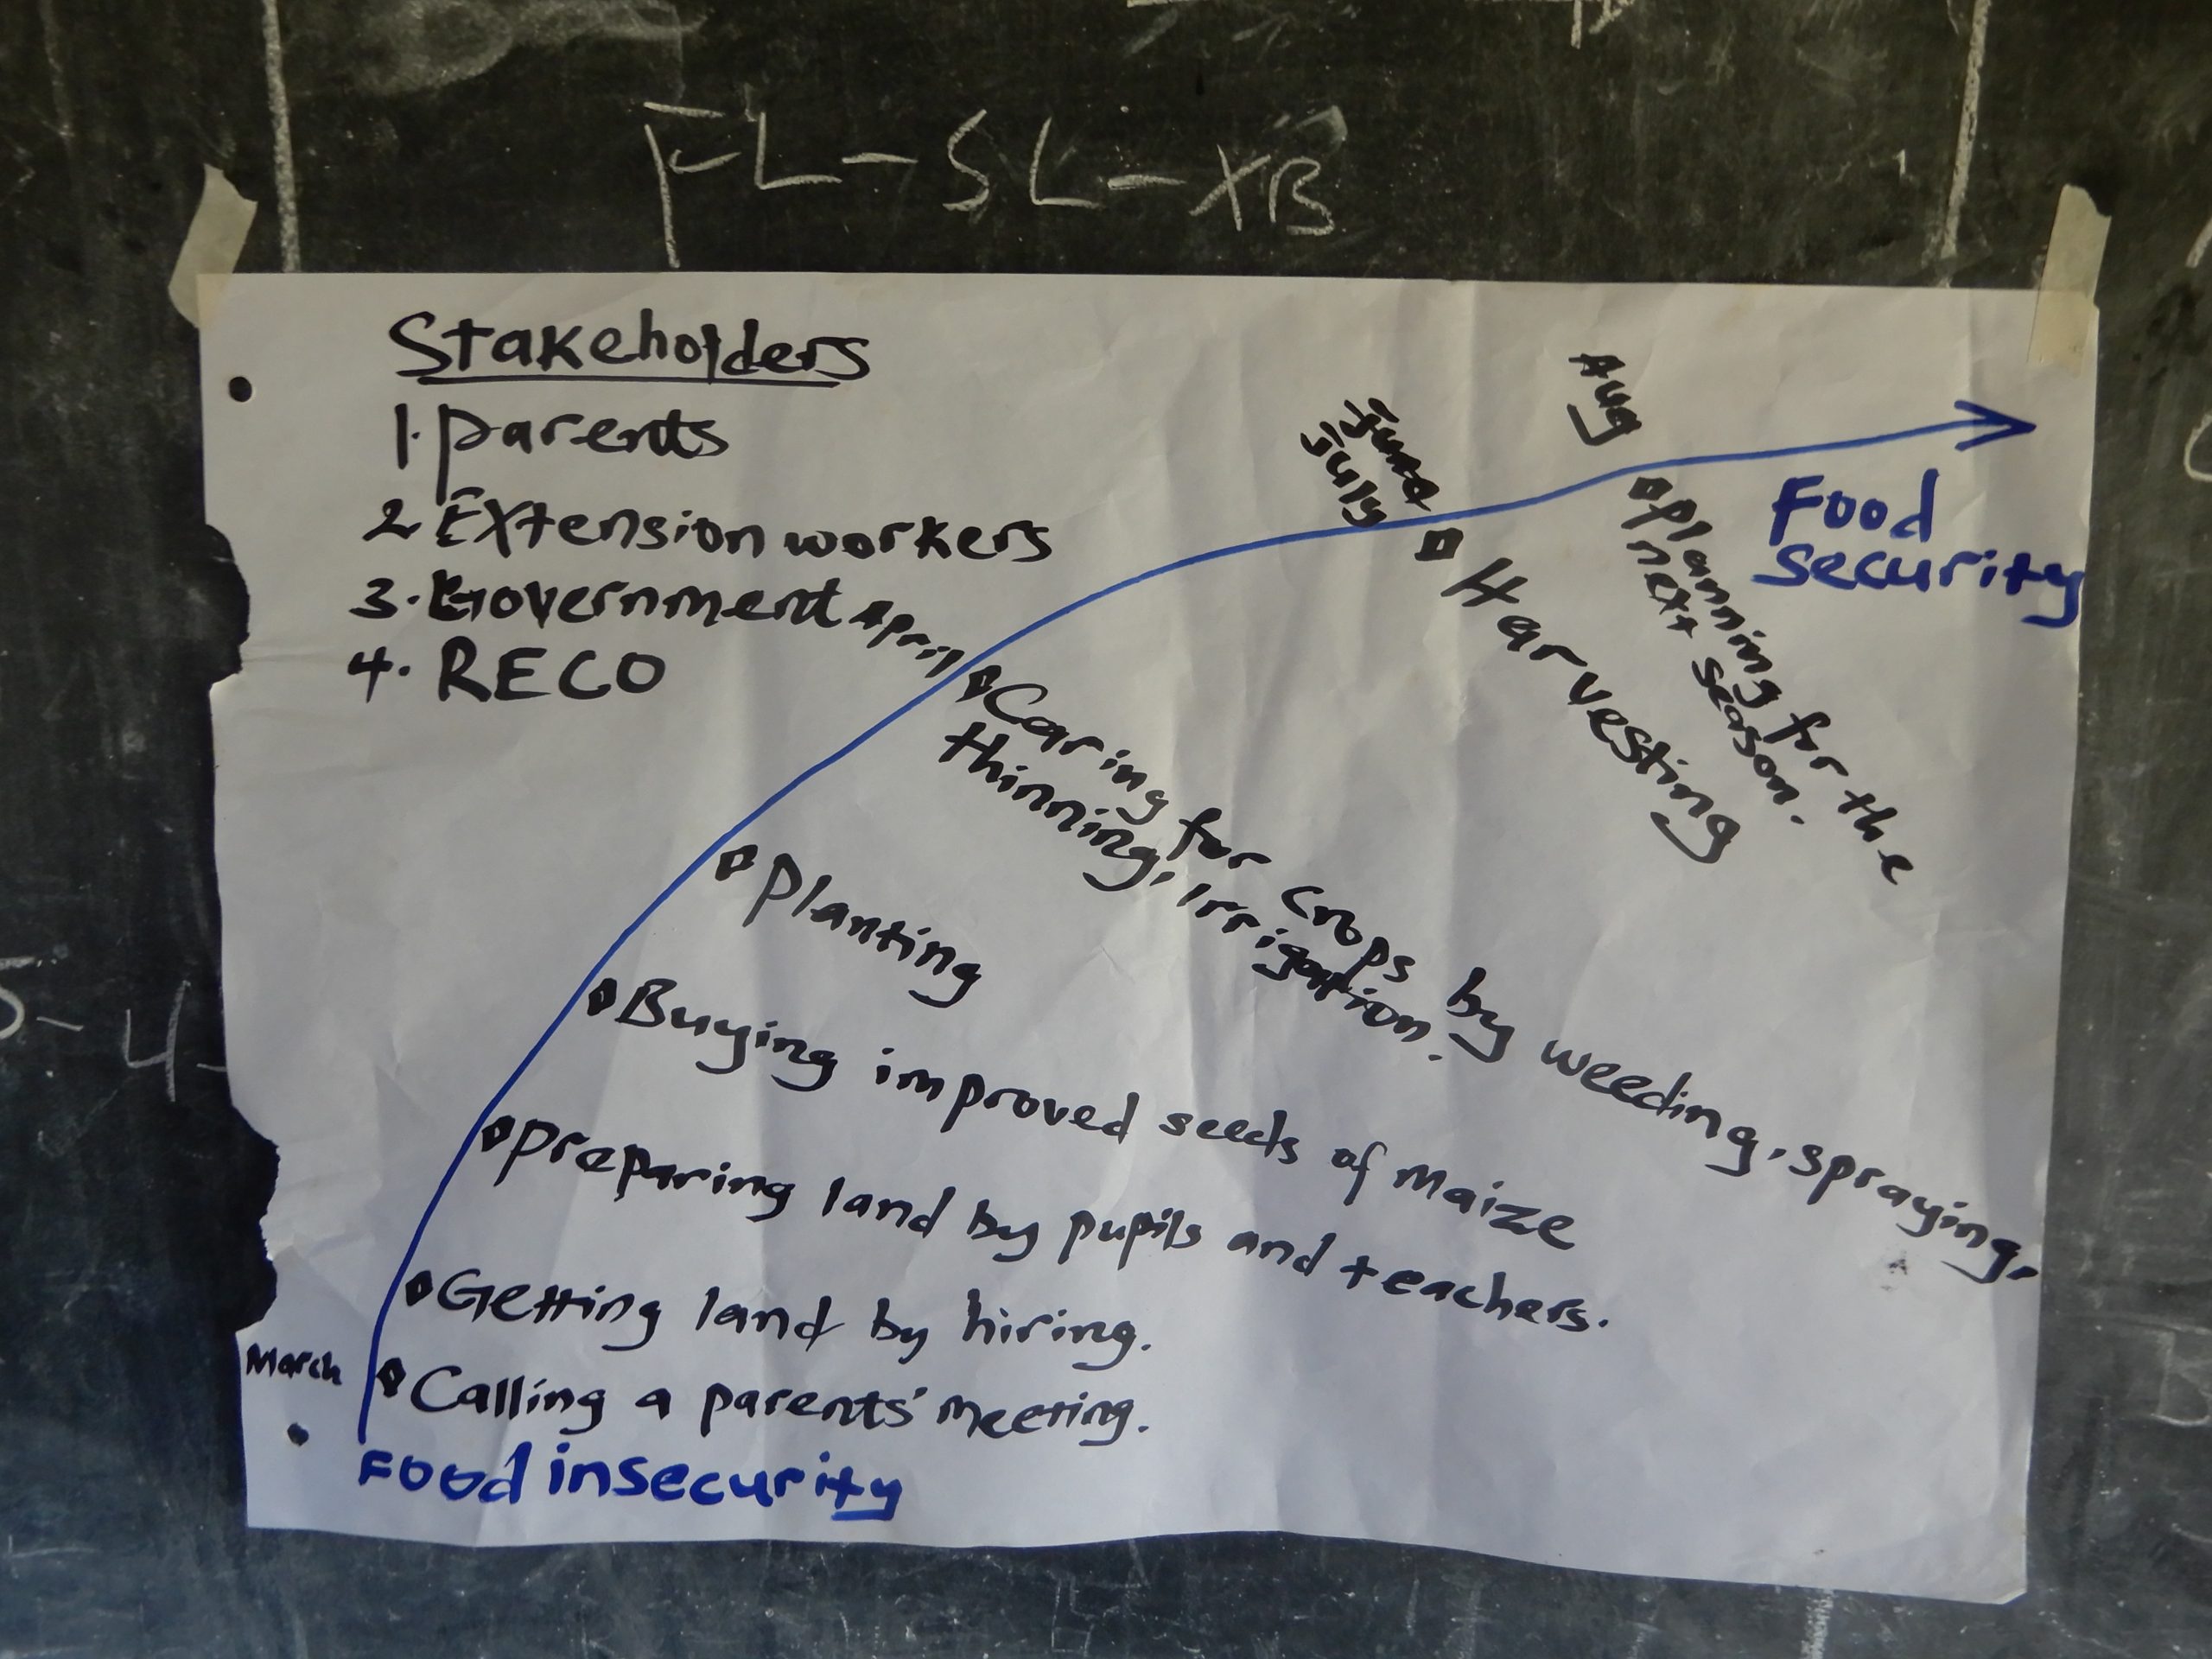 FL-SL-XB
Stakeholders
1. parents
2. Extension workers
3. Government
4. RECO
Aug
June
July
April
Food
security
Planning for the
next season.
Harvesting
Caring for crops by weeding, spraying,
thinning, irrigation.
Planting
Buying improved seeds of maize
preparing land by pupils and teachers.
Getting land by hiring.
March
Calling a parents' meeting.
Food insecurity